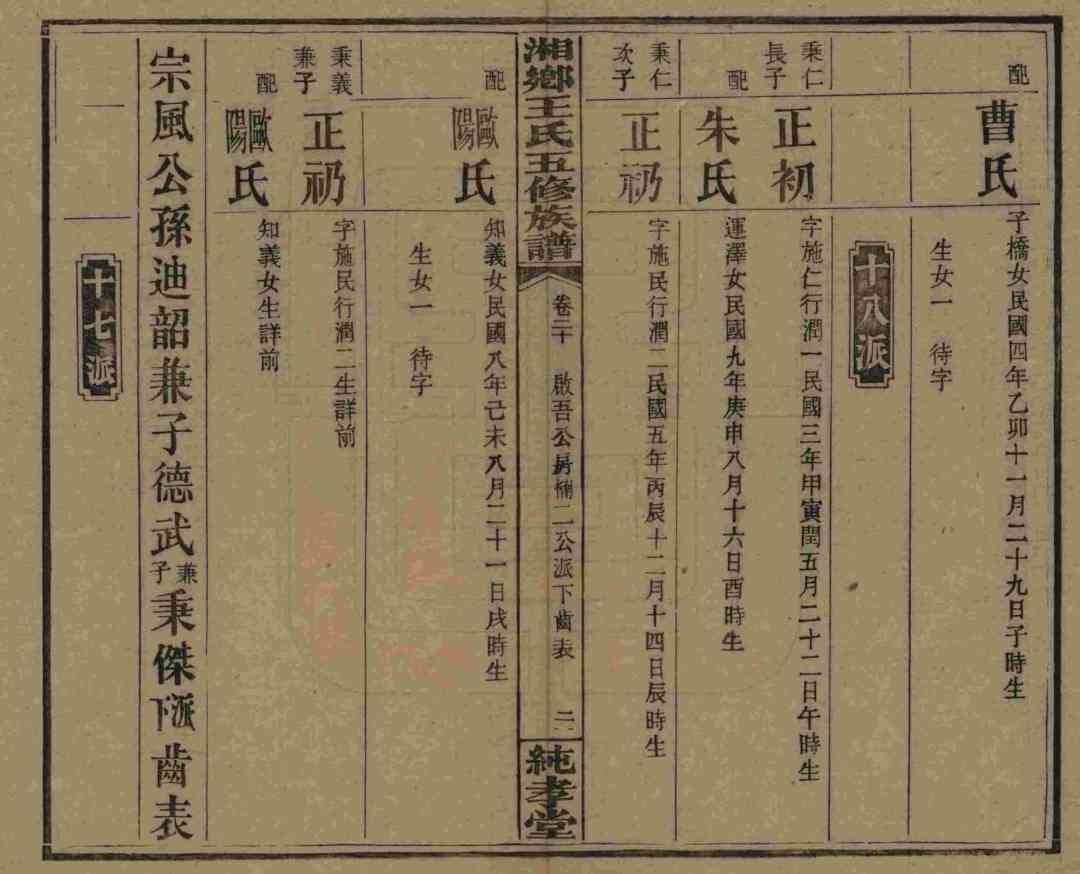 配 曹氏 子橋女民國四年乙卯十一月二十九日子時生
生女一 待字
十八派
秉仁長子 正初 字施仁行潤一民國三年甲寅閏五月二十二日午時生
配 朱氏 運澤女民國九年庚申八月十六日酉時生
秉仁次子 正礽 字施民行潤二民國五年丙辰十二月十四日辰時生
湘鄉王氏五修族譜 卷二十 啟吾公房 二公派下齒表 二 純孝堂
配 歐陽氏 知義女民國八年己未八月二十一日戌時生
生女一 待字
秉義兼子 正礽 字施民行潤二生詳前
配 歐陽氏 知義女生詳前
宗風公孫迪韶兼子德武兼子秉傑派下齒表
十七派